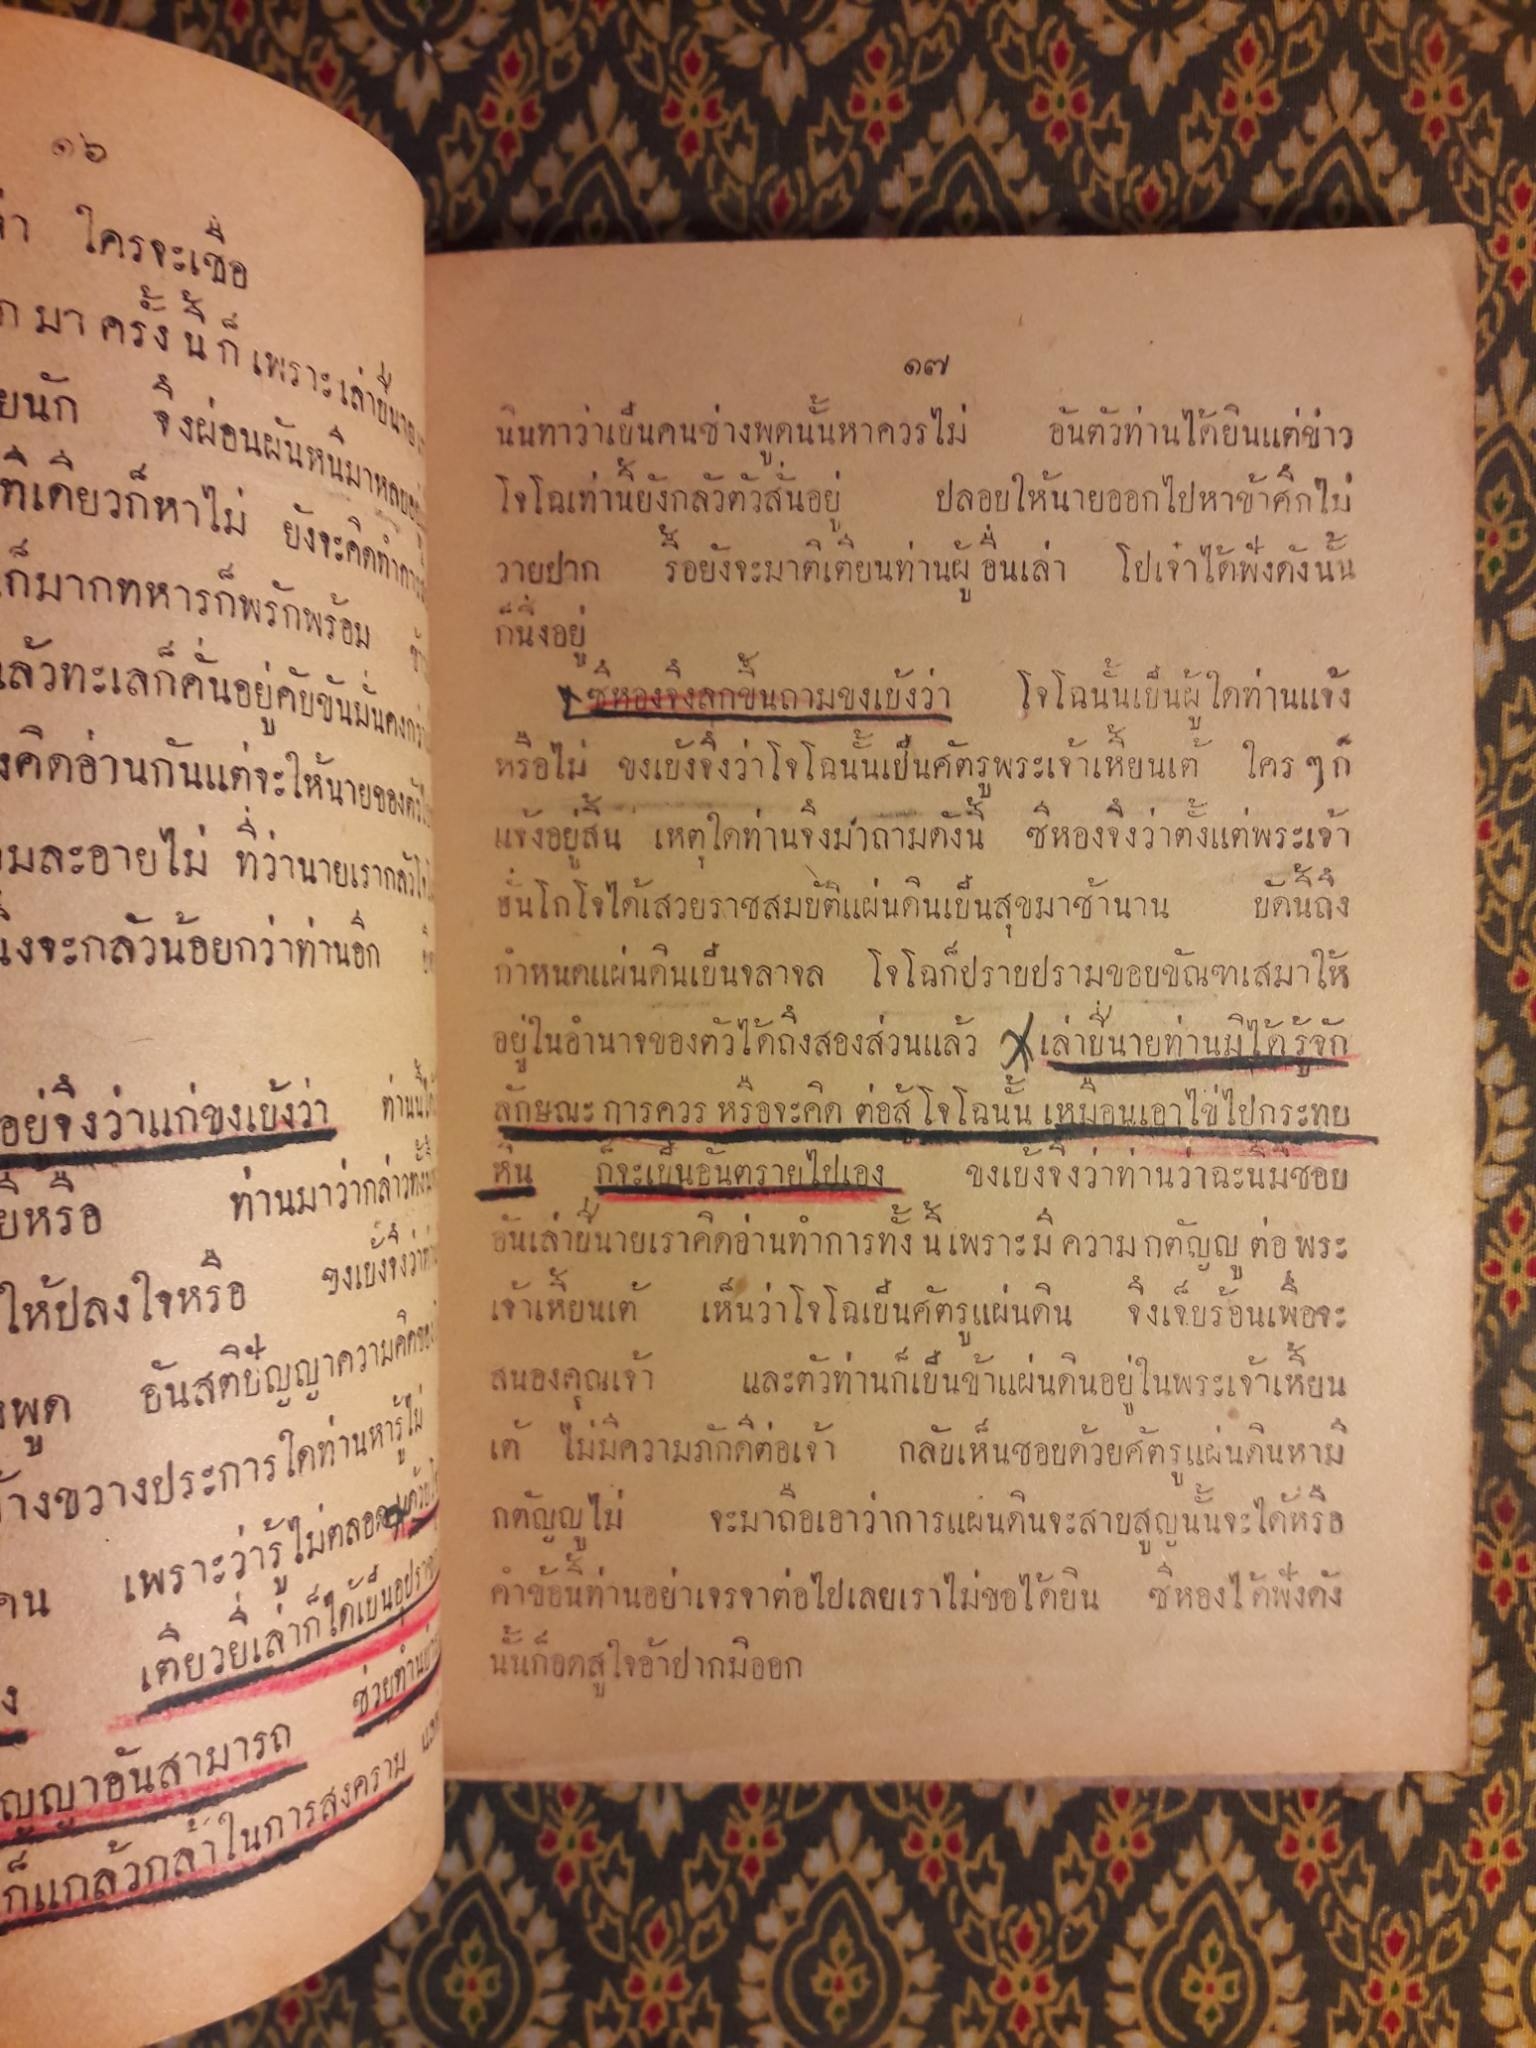 ๑๖
ใครจะเชื่อ
มาครั้งนี้ก็เพราะเล่าปี่นาย
นัก จึงผ่อนผันหนีมาหลบอยู่
ทีเดียวก็หาไม่ ยังจะคิดทำการ
ก็มากทหารก็พรักพร้อม
แล้วทะเลก็คั่นอยู่คับขันมั่นคงกว่า
คิดอ่านกันแต่จะให้นายของตัว
ละอายไม่ ที่ว่านายเรากลัว
จะกลัวน้อยกว่าท่านอีก
จึงว่าแก่ขงเบ้งว่า ท่านนี้
หรือ ท่านมาว่ากล่าวทั้งนี้
ให้ปลงใจหรือ ขงเบ้งจึงว่า
พูด อันสติปัญญาความคิดของ
ขวางประการใดท่านหารู้ไม่
เพราะว่ารู้ไม่ตลอด
เตียวยี่เล่าก็ได้เป็นอุปราช
ช่วยทำนุ
อันสามารถ
ก็แกล้วกล้าในการสงคราม
๑๗
นินทาว่าเป็นคนช่างพูดนั้นหาควรไม่ อันตัวท่านได้ยินแต่ข่าว
โจโฉเท่านี้ยังกลัวตัวสั่นอยู่ ปลอบให้นายออกไปหาข้าศึกไม่
วายปาก รื้อยังจะมาติเตียนท่านผู้อื่นเล่า โปเจ๋าได้ฟังดังนั้น
ก็นิ่งอยู่
ซีหองจึงลุกขึ้นถามขงเบ้งว่า โจโฉนั้นเป็นผู้ใดท่านแจ้ง
หรือไม่ ขงเบ้งจึงว่าโจโฉนั้นเป็นศัตรูพระเจ้าเหี้ยนเต้ ใคร ๆ ก็
แจ้งอยู่สิ้น เหตุใดท่านจึงมาถามดังนี้ ซีหองจึงว่าตั้งแต่พระเจ้า
ฮั่นโกโจได้เสวยราชสมบัติแผ่นดินเป็นสุขมาช้านาน บัดนี้ถึง
กำหนดแผ่นดินเป็นจลาจล โจโฉก็ปราบปรามขอบขัณฑเสมาให้
อยู่ในอำนาจของตัวได้ถึงสองส่วนแล้ว เล่าปี่นายท่านมิได้รู้จัก
ลักษณะการควร หรือจะคิดต่อสู้โจโฉนั้น เหมือนเอาไข่ไปกระทบ
หิน ก็จะเป็นอันตรายไปเอง ขงเบ้งจึงว่าท่านว่าฉะนี้มิชอบ
อันเล่าปี่นายเราคิดอ่านทำการทั้งนี้เพราะมีความกตัญญูต่อพระ
เจ้าเหี้ยนเต้ เห็นว่าโจโฉเป็นศัตรูแผ่นดิน จึงเจ็บร้อนเพื่อจะ
สนองคุณเจ้า และตัวท่านก็เป็นข้าแผ่นดินอยู่ในพระเจ้าเหี้ยน
เต้ ไม่มีความภักดีต่อเจ้า กลับเห็นชอบด้วยศัตรูแผ่นดินหามี
กตัญญูไม่ จะมาถือเอาว่าการแผ่นดินจะสาบสูญนั้นจะได้หรือ
คำข้อนี้ท่านอย่าเจรจาต่อไปเลยเราไม่ขอได้ยิน ซีหองได้ฟังดัง
นั้นก็อดสูใจอ้าปากมิออก